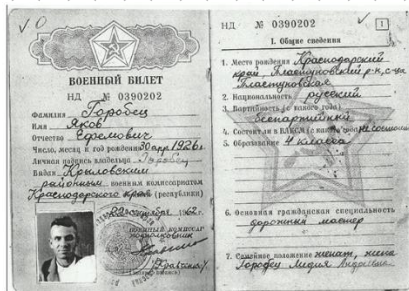 ВОЕННЫЙ БИЛЕТ
НД № 0390202
Фамилия Горобец
Имя Яков
Отчество Ефремович
Число, месяц и год рождения 30 апр 1926 г.
Личная подпись владельца Горобец
Выдан Крыловским
районным военным комиссариатом
Краснодарского края (республики)
НД № 0390202
1
I. Общие сведения
1. Место рождения Краснодарский
край, Пластуновский р-н, с-ца
Пластуновская
2. Национальность русский
3. Партийность (с какого года)
беспартийный
4. Состоит ли в ВЛКСМ (с какого года) не состоит
5. Образование 4 класса
6. Основная гражданская специальность
дорожный мастер
7. Семейное положение женат, жена
Горобец Лидия Андреевна